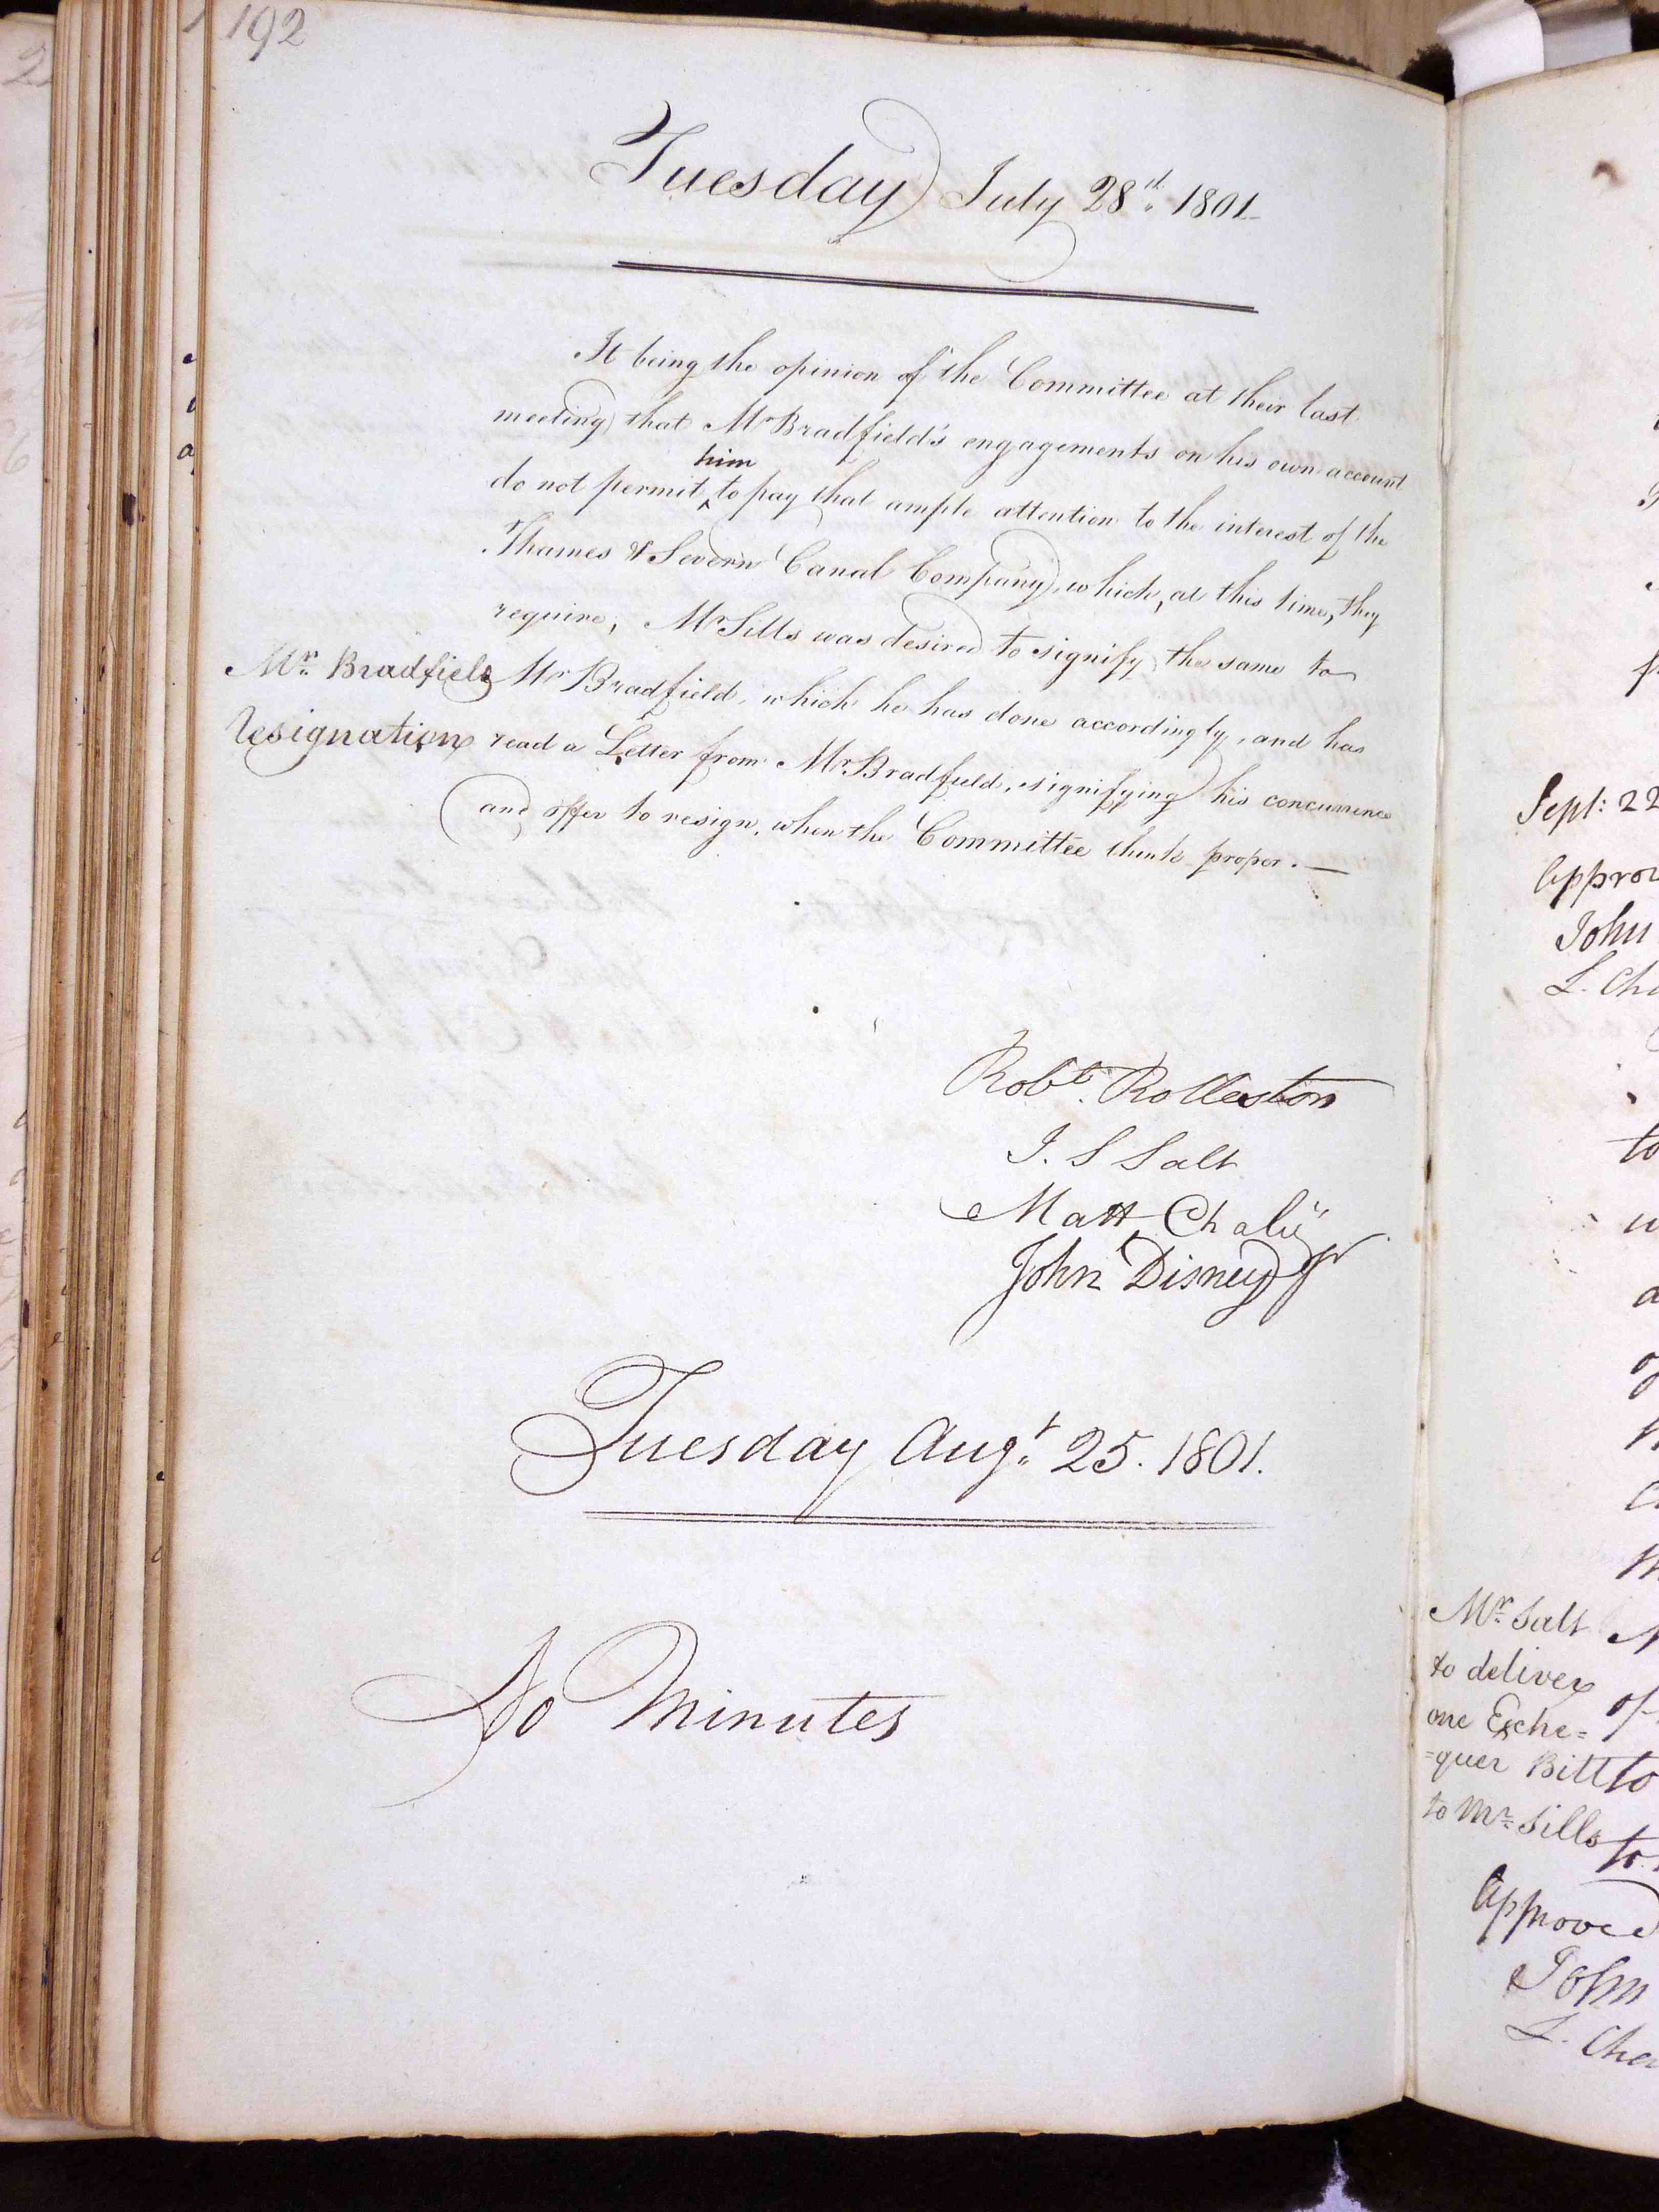 192
Tuesday July 28th. 1801
It being the opinion of the Committee at their last
meeting that Mr Bradfield's engagements on his own account
do not permit him to pay that ample attention to the interest of the
Thames & Severn Canal Company, which, at this time, they
require, Mr Sills was desired to signify the same to
Mr. Bradfield Mr Bradfield, which he has done accordingly, and has
resignation read a Letter from Mr Bradfield, signifying his concurrence
and offer to resign, when the Committee think proper. —
Robt. Rolleston
J. S Salt
Matt Chalié
John Disney Jr
Tuesday Augt. 25. 1801.
No Minutes
Sept: 22
John
Mr. Salt
to deliver
one Exche=
=quer Bill to
to Mr. Sills
Approved
John